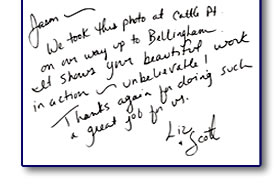 Jason —
We took this photo at Cattle Pt.
on our way up to Bellingham.
It shows your beautiful work
in action ~ unbelievable!
Thanks again for doing such
a great job for us.
Liz
+ Scott